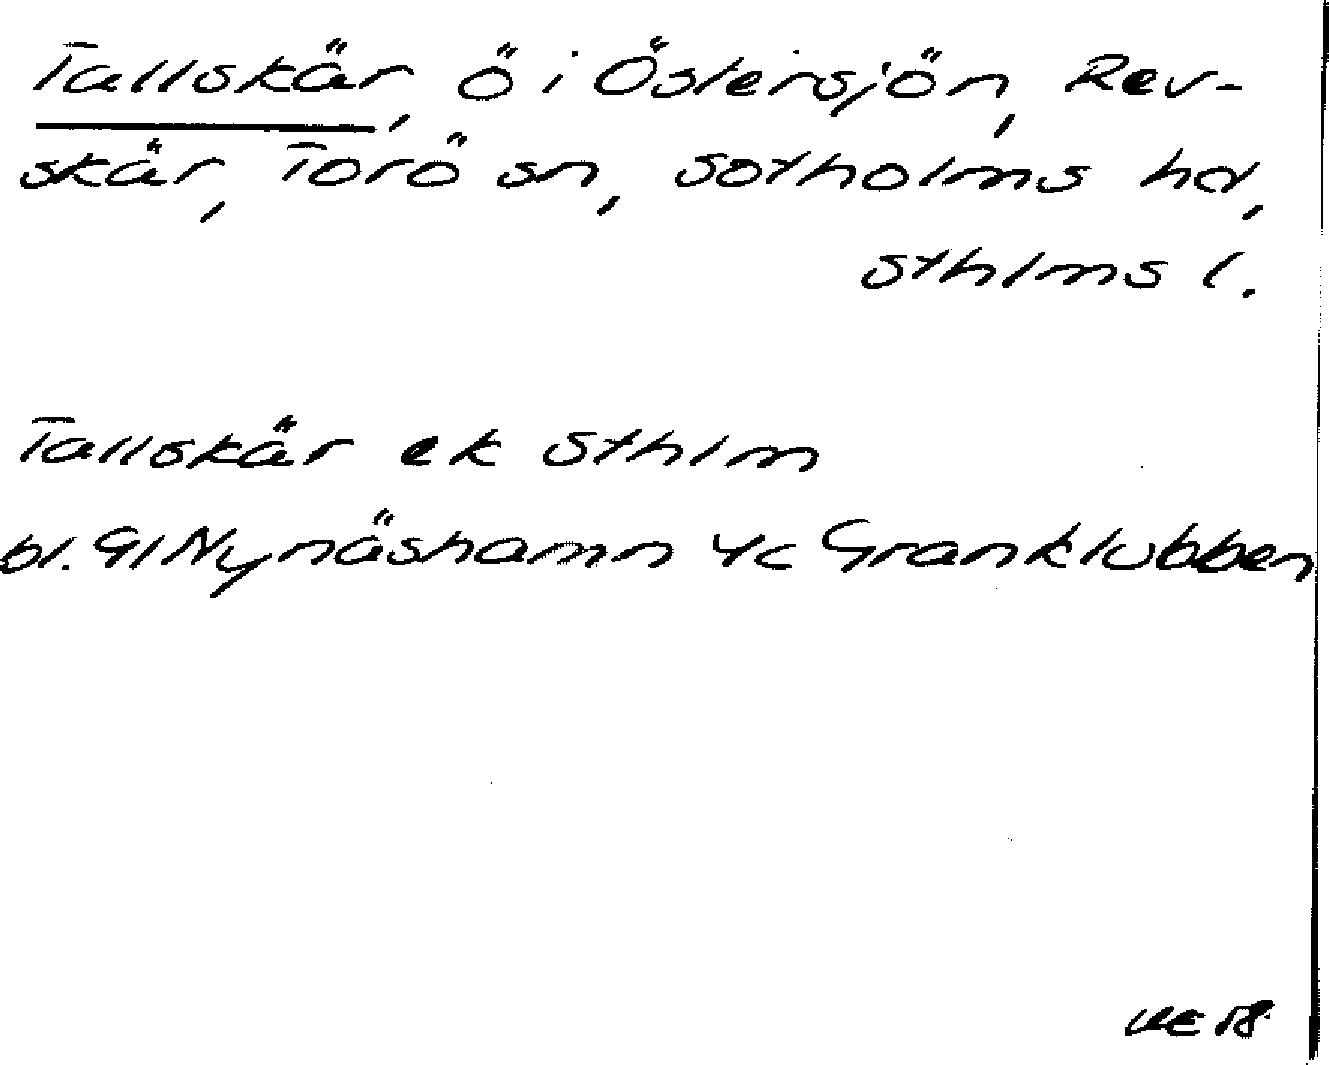 Tallskär, ö i Östersjön, Rev-
skär, Torö sn, Sotholms hd,
Sthlms l.
Tallskär ek Sthlm
bl. 91 Nynäshamn 4c Granklubben
58